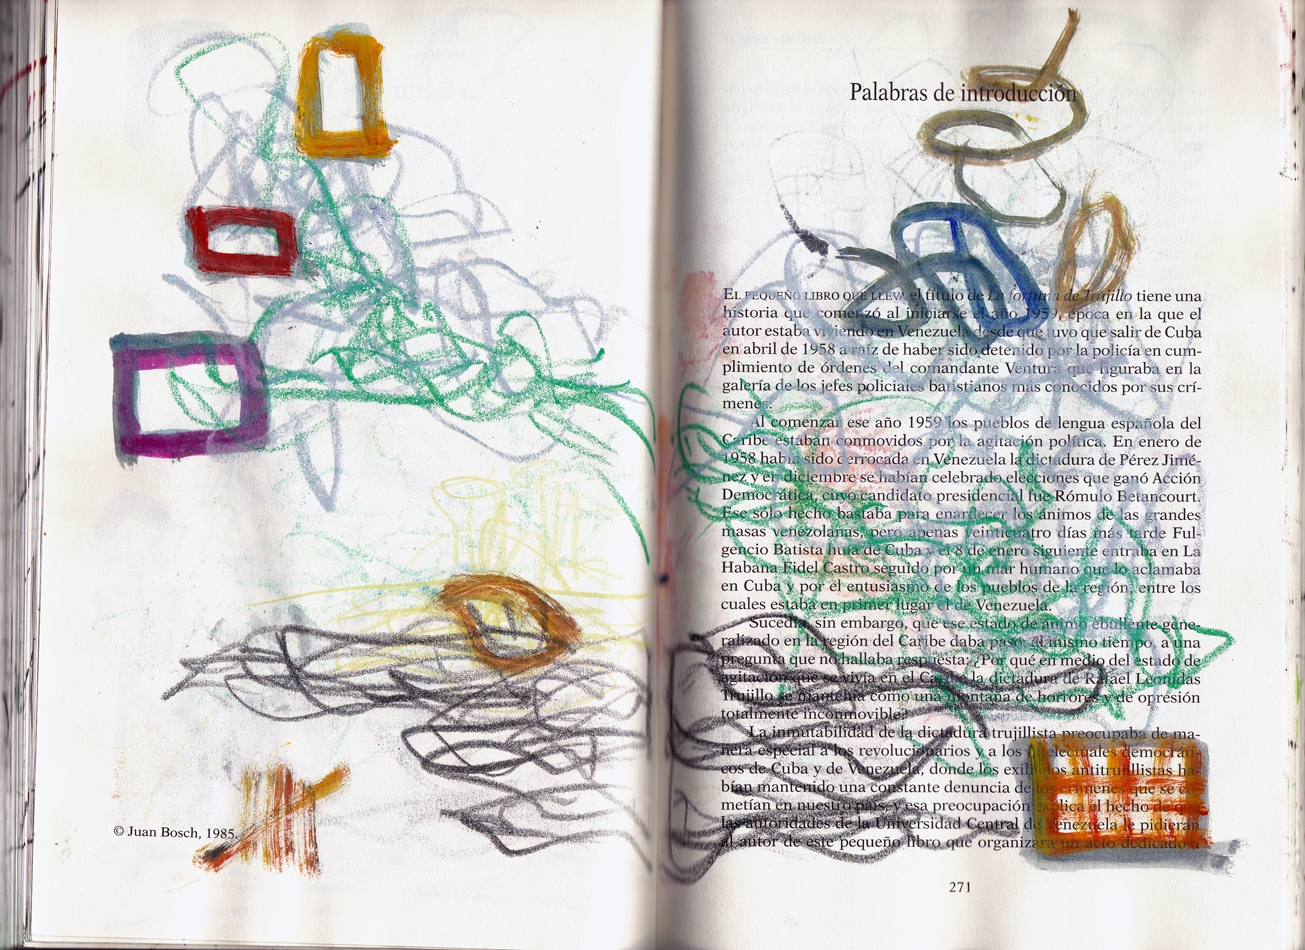 © Juan Bosch, 1985.
Palabras de introducción
EL PEQUEÑO LIBRO QUE LLEVA el título de La fortuna de Trujillo tiene una
historia que comenzó al iniciarse el año 1959, época en la que el
autor estaba viviendo en Venezuela desde que tuvo que salir de Cuba
en abril de 1958 a raíz de haber sido detenido por la policía en cum-
plimiento de órdenes del comandante Ventura que figuraba en la
galería de los jefes policiales batistianos más conocidos por sus crí-
menes.
Al comenzar ese año 1959 los pueblos de lengua española del
Caribe estaban conmovidos por la agitación política. En enero de
1958 había sido derrocada en Venezuela la dictadura de Pérez Jimé-
nez y en diciembre se habían celebrado elecciones que ganó Acción
Democrática, cuyo candidato presidencial fue Rómulo Betancourt.
Ese sólo hecho bastaba para enardecer los ánimos de las grandes
masas venezolanas, pero apenas veinticuatro días más tarde Ful-
gencio Batista huía de Cuba y el 8 de enero siguiente entraba en La
Habana Fidel Castro seguido por un mar humano que lo aclamaba
en Cuba y por el entusiasmo de los pueblos de la región, entre los
cuales estaba en primer lugar el de Venezuela.
Sucedía, sin embargo, que ese estado de ánimo ebullente gene-
ralizado en la región del Caribe daba paso, al mismo tiempo, a una
pregunta que no hallaba respuesta: ¿Por qué en medio del estado de
agitación que se vivía en el Caribe la dictadura de Rafael Leonidas
Trujillo se mantenía como una montaña de horrores y de opresión
totalmente inconmovible?
La inmutabilidad de la dictadura trujillista preocupaba de ma-
nera especial a los revolucionarios y a los intelectuales democráti-
cos de Cuba y de Venezuela, donde los exiliados antitrujillistas ha-
bían mantenido una constante denuncia de los crímenes que se co-
metían en nuestro país, y esa preocupación explica el hecho de que
las autoridades de la Universidad Central de Venezuela le pidieran
al autor de este pequeño libro que organizara un acto dedicado a
271